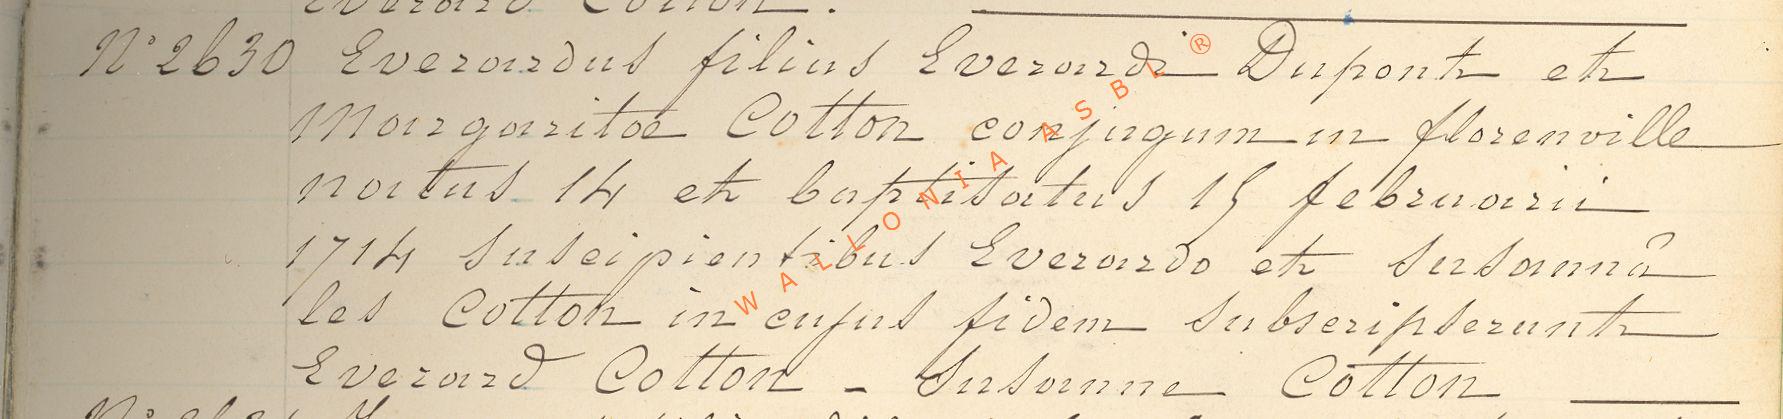 Everard Cotton.
N° 2630 Everardus filius Everardi Dupont et
Margaritae Cotton conjugum in florenville
natus 14 et baptisatus 15 februarii
1714 suscipientibus Everardo et susannâ
les Cotton in cujus fidem subscripserunt
Everard Cotton - Susanne Cotton
WALLONIA ASBL ®